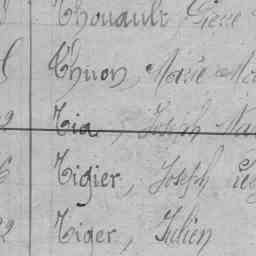 Thouault Pierre
Thuon, Marie
2 Tia, Joseph
Tigier, Joseph
2 Tiger, Julien